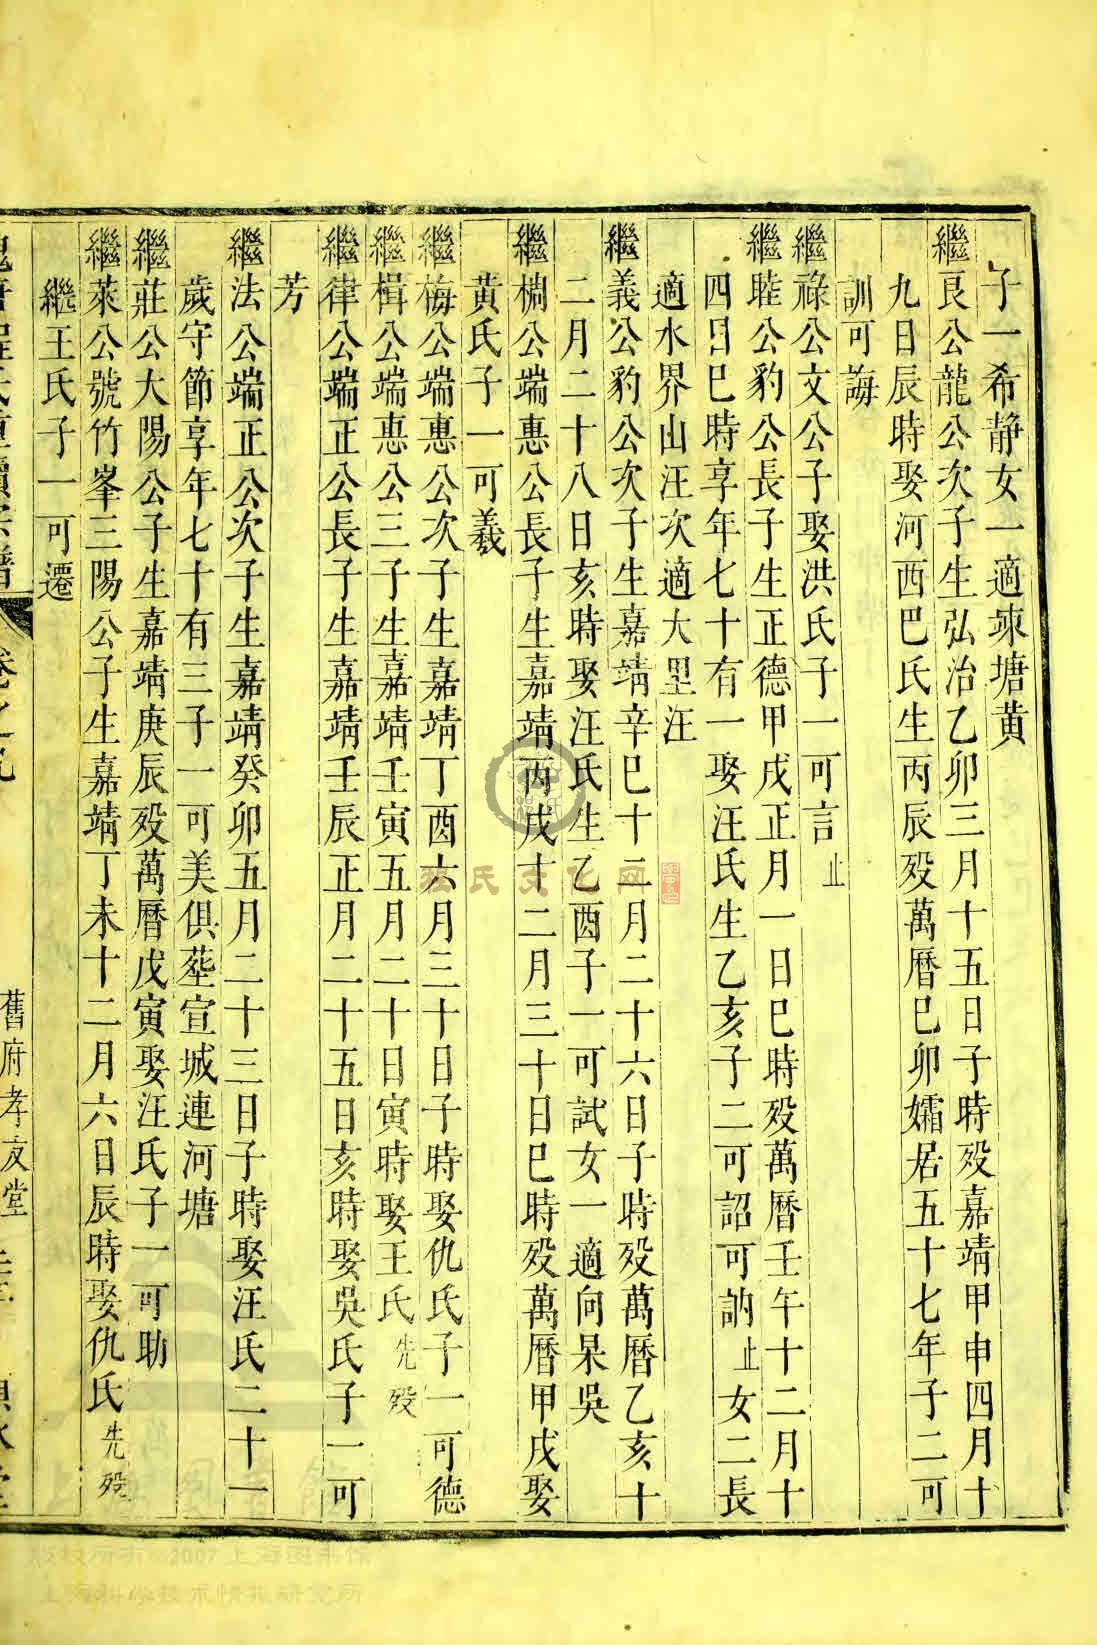 子一希靜女一適竦塘黄
繼艮公龍公次子生弘治乙卯三月十五日子時殁嘉靖甲申四月十
九日辰時娶河西巴氏生丙辰殁萬曆巳卯孀居五十七年子二可
訓可誨
繼祿公文公子娶洪氏子一可言止
繼睦公豹公長子生正德甲戌正月一日巳時殁萬曆壬午十二月十
四日巳時享年七十有一娶汪氏生乙亥子二可詔可訥止女二長
適水界山汪次適大里汪
繼義公豹公次子生嘉靖辛巳十二月二十六日子時殁萬曆乙亥十
二月二十八日亥時娶汪氏生乙酉子一可試女一適向杲吳
繼榈公端惠公長子生嘉靖丙戌十二月三十日巳時殁萬曆甲戌娶
黃氏子一可義
繼梅公端惠公次子生嘉靖丁酉六月三十日子時娶仇氏子一可德
繼楫公端惠公三子生嘉靖壬寅五月二十日寅時娶王氏先殁
繼律公端正公長子生嘉靖壬辰正月二十五日亥時娶吳氏子一可
芳
繼法公端正公次子生嘉靖癸卯五月二十三日子時娶汪氏二十一
歲守節享年七十有三子一可美俱塟宣城連河塘
繼莊公大陽公子生嘉靖庚辰殁萬曆戊寅娶汪氏子一可助
繼萊公號竹峯三陽公子生嘉靖丁未十二月六日辰時娶仇氏先殁
繼王氏子一可遷
卷之九
舊府孝友堂
版权所有©2007上海图书馆
上海科学技术情报研究所